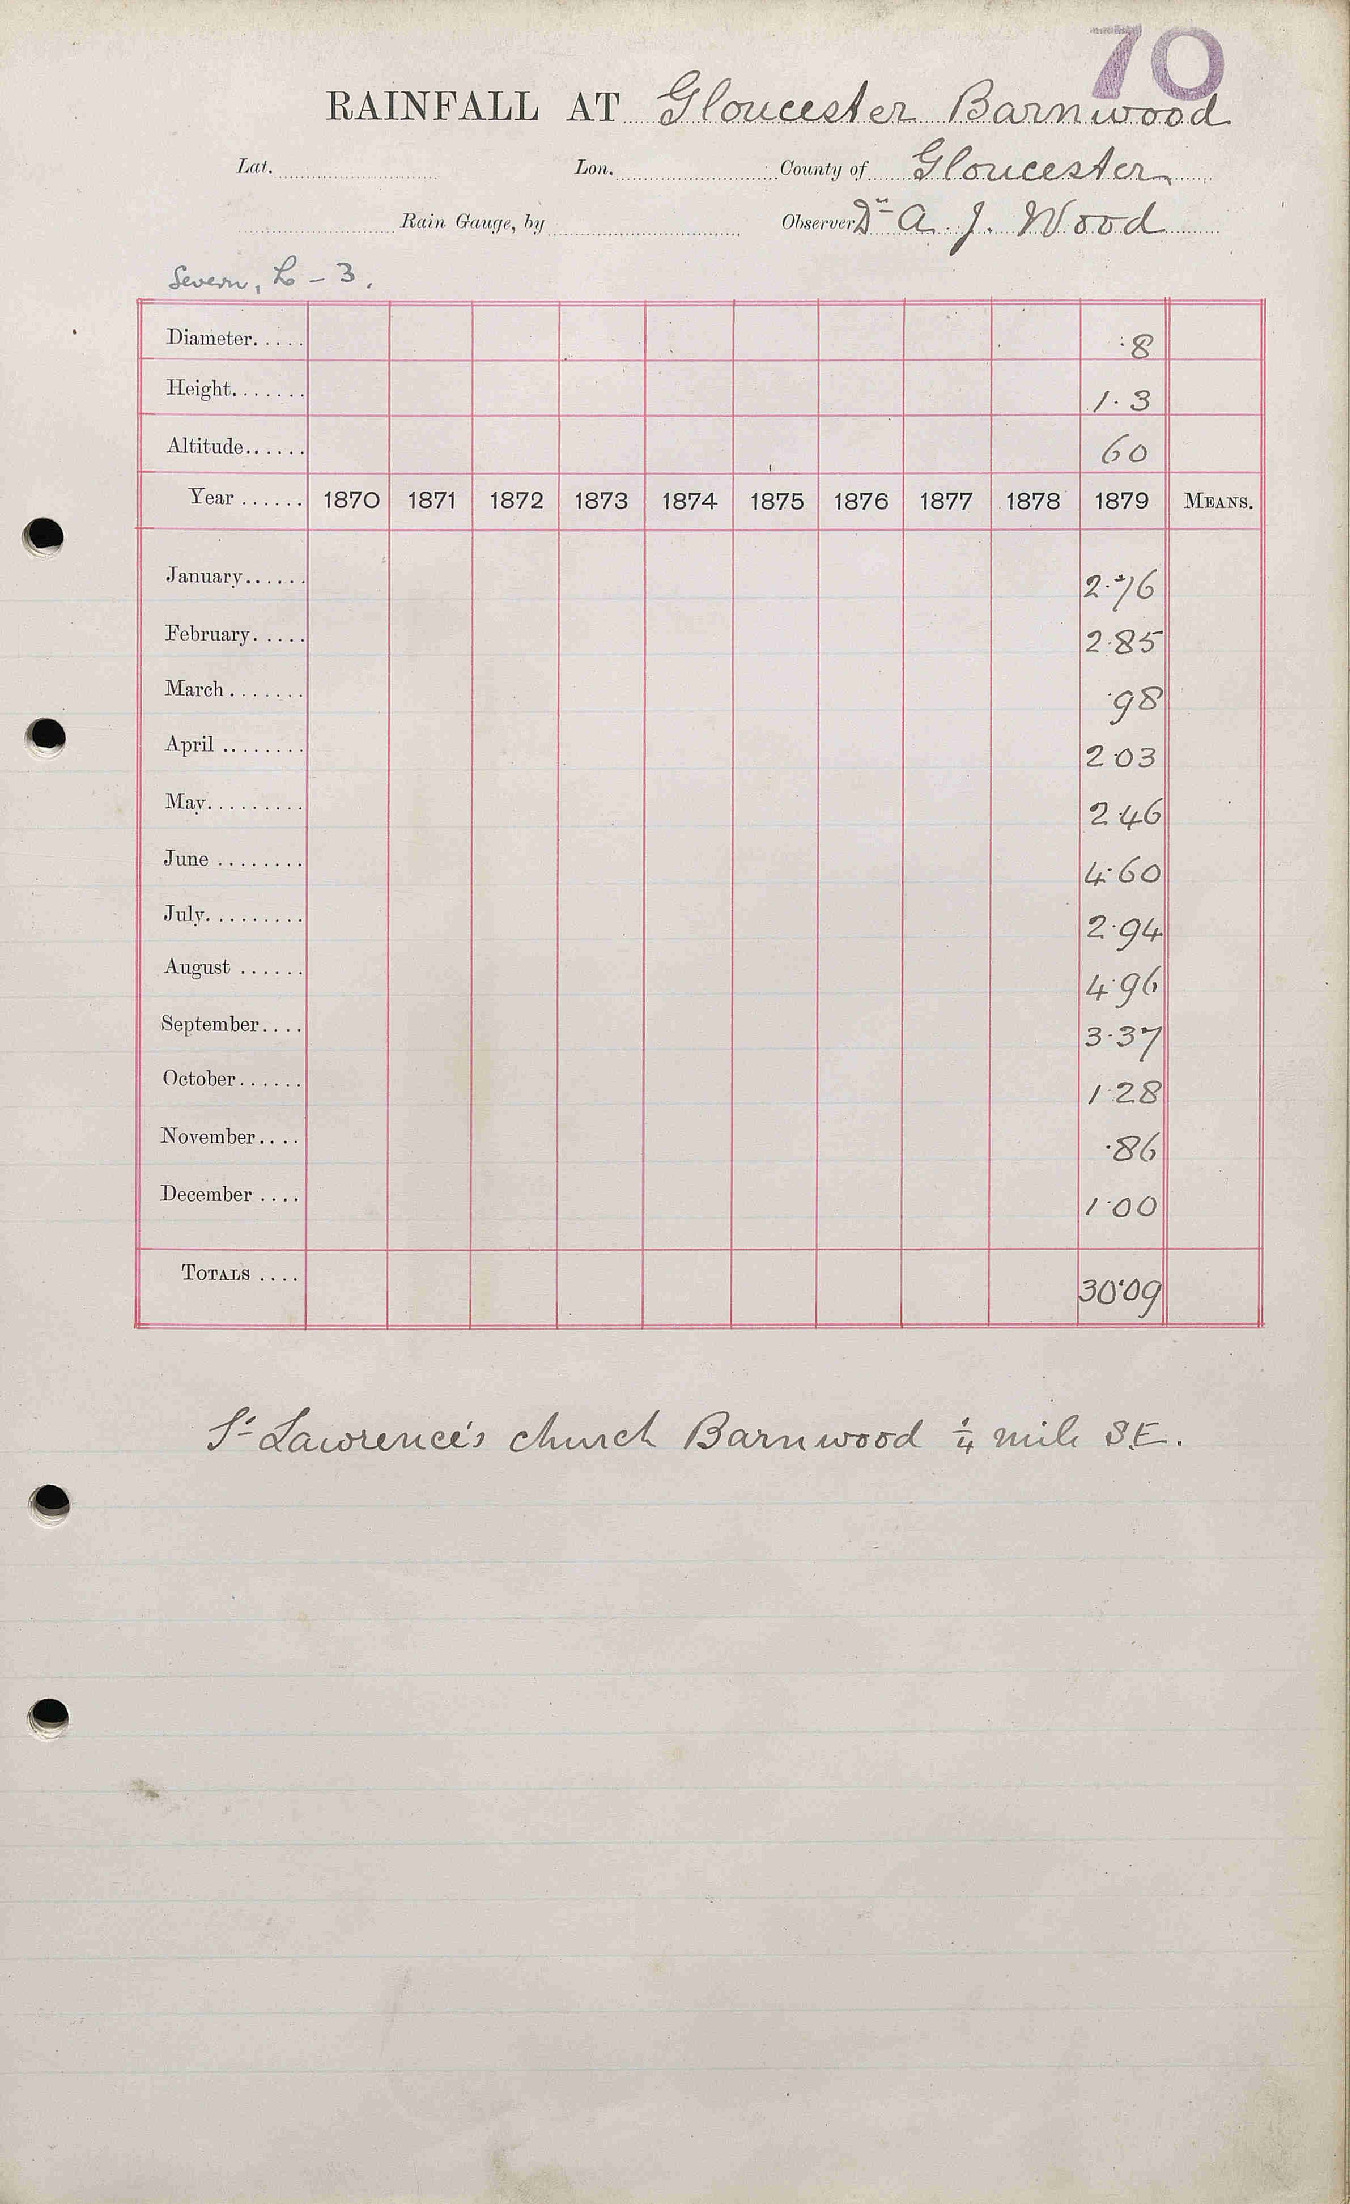 70
RAINFALL AT Gloucester Barnwood
Lat. Lon. County of Gloucester
Rain Gauge, by Observer Dr A. J. Wood
Severn, L - 3.
Diameter..... 8
Height....... 1.3
Altitude...... 60
Year ...... 1870 1871 1872 1873 1874 1875 1876 1877 1878 1879 MEANS.
January...... 2.76
February..... 2.85
March....... .98
April ........ 2.03
May......... 2.46
June ........ 4.60
July......... 2.94
August ...... 4.96
September.... 3.37
October...... 1.28
November.... .86
December .... 1.00
TOTALS .... 30.09
St Lawrence's church Barnwood ¼ mile S.E.